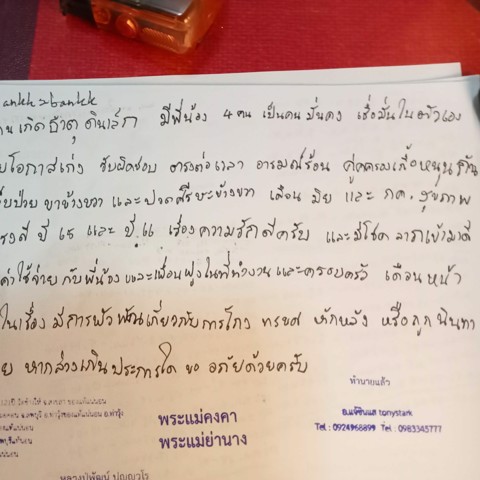 ankk2bankk
เกิดธาตุดินเล็ก มีพี่น้อง 4 คน เป็นคนมั่นคง เชื่อมั่นในตัวเอง
โอกาสเก่ง รับผิดชอบ ตรงต่อเวลา อารมณ์ร้อน คู่ครองเกื้อหนุน
ป่วย ขาข้างขวา และปวดศรีษะข้างขวา เดือน มิย และ กค. สุขภาพ
ปี 65 และ ปี 66 เรื่องความรักดีครับ และมีโชคลาภเข้ามาดี
ค่าใช้จ่าย กับพี่น้อง และเพื่อนฝูงในที่ทำงาน และครอบครัว เดือนหน้า
ในเรื่อง มีการพัวพันเกี่ยวกับการโกง ทรยศ หักหลัง หรือถูกนินทา
หากล่วงเกินประการใด ขออภัยด้วยครับ
ทำนายแล้ว
อ.แจ๊ซินแส tonystark
Tel : 0924968899 Tel : 0983345777
พระแม่คงคา
พระแม่ย่านาง
หลวงปู่พัฒน์ ปุญญกาโร